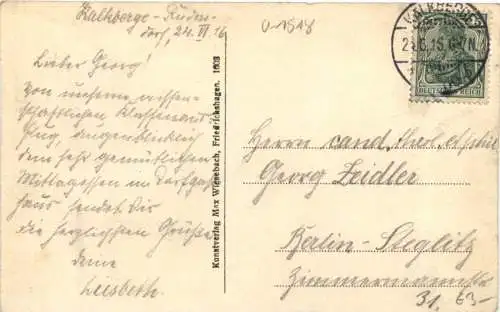 Kalkberge-Rüders-
dorf, 24. VI. 16
U-1518
Lieber Georg!
Von unserm wissen-
schaftlichen Klassenaus-
flug, augenblicklich
dem sehr gemütlichen
Mittagessen im Dorfgast-
haus sendet Dir
die herzlichsten Grüße
deine
Liesbeth.
Kunstverlag Max Wiesebach, Friedrichshagen. 1603
KALKBERGE
DEUTSCHES REICH
Herrn cand. theol. et phil.
Georg Zeidler
Berlin-Steglitz
Zimmermannstr.
31. 63-